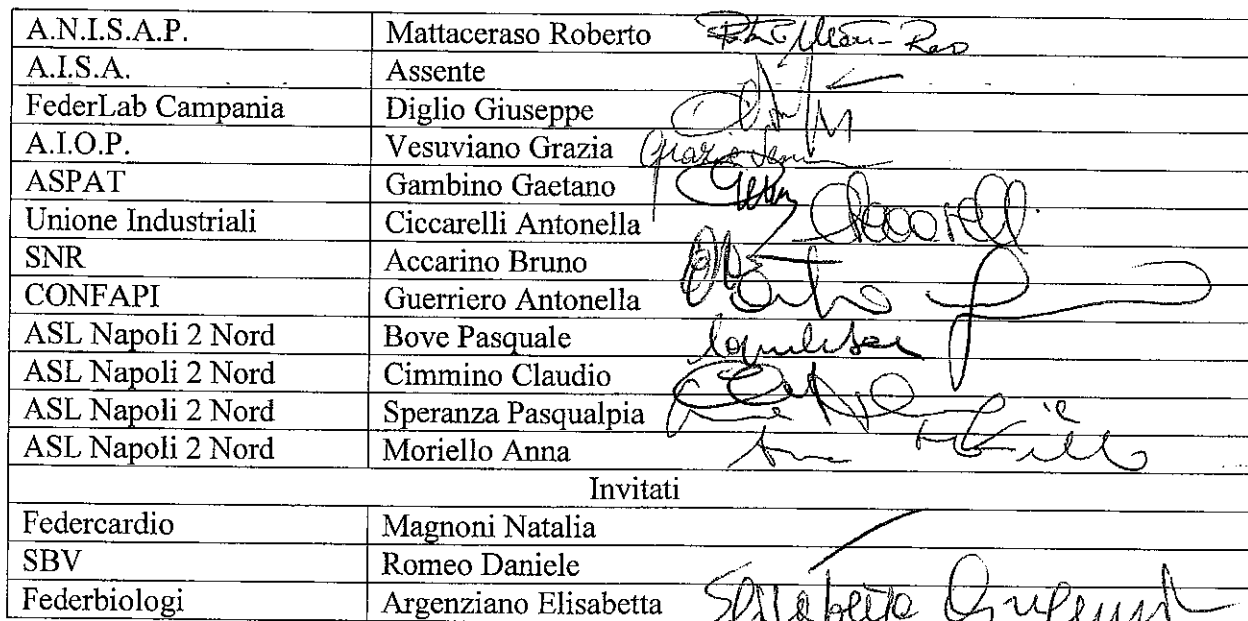 A.N.I.S.A.P. Mattaceraso Roberto
A.I.S.A. Assente
FederLab Campania Diglio Giuseppe
A.I.O.P. Vesuviano Grazia Grazia
ASPAT Gambino Gaetano
Unione Industriali Ciccarelli Antonella Ciccarelli
SNR Accarino Bruno
CONFAPI Guerriero Antonella
ASL Napoli 2 Nord Bove Pasquale
ASL Napoli 2 Nord Cimmino Claudio
ASL Napoli 2 Nord Speranza Pasqualpia
ASL Napoli 2 Nord Moriello Anna
Invitati
Federcardio Magnoni Natalia
SBV Romeo Daniele
Federbiologi Argenziano Elisabetta Elisabetta